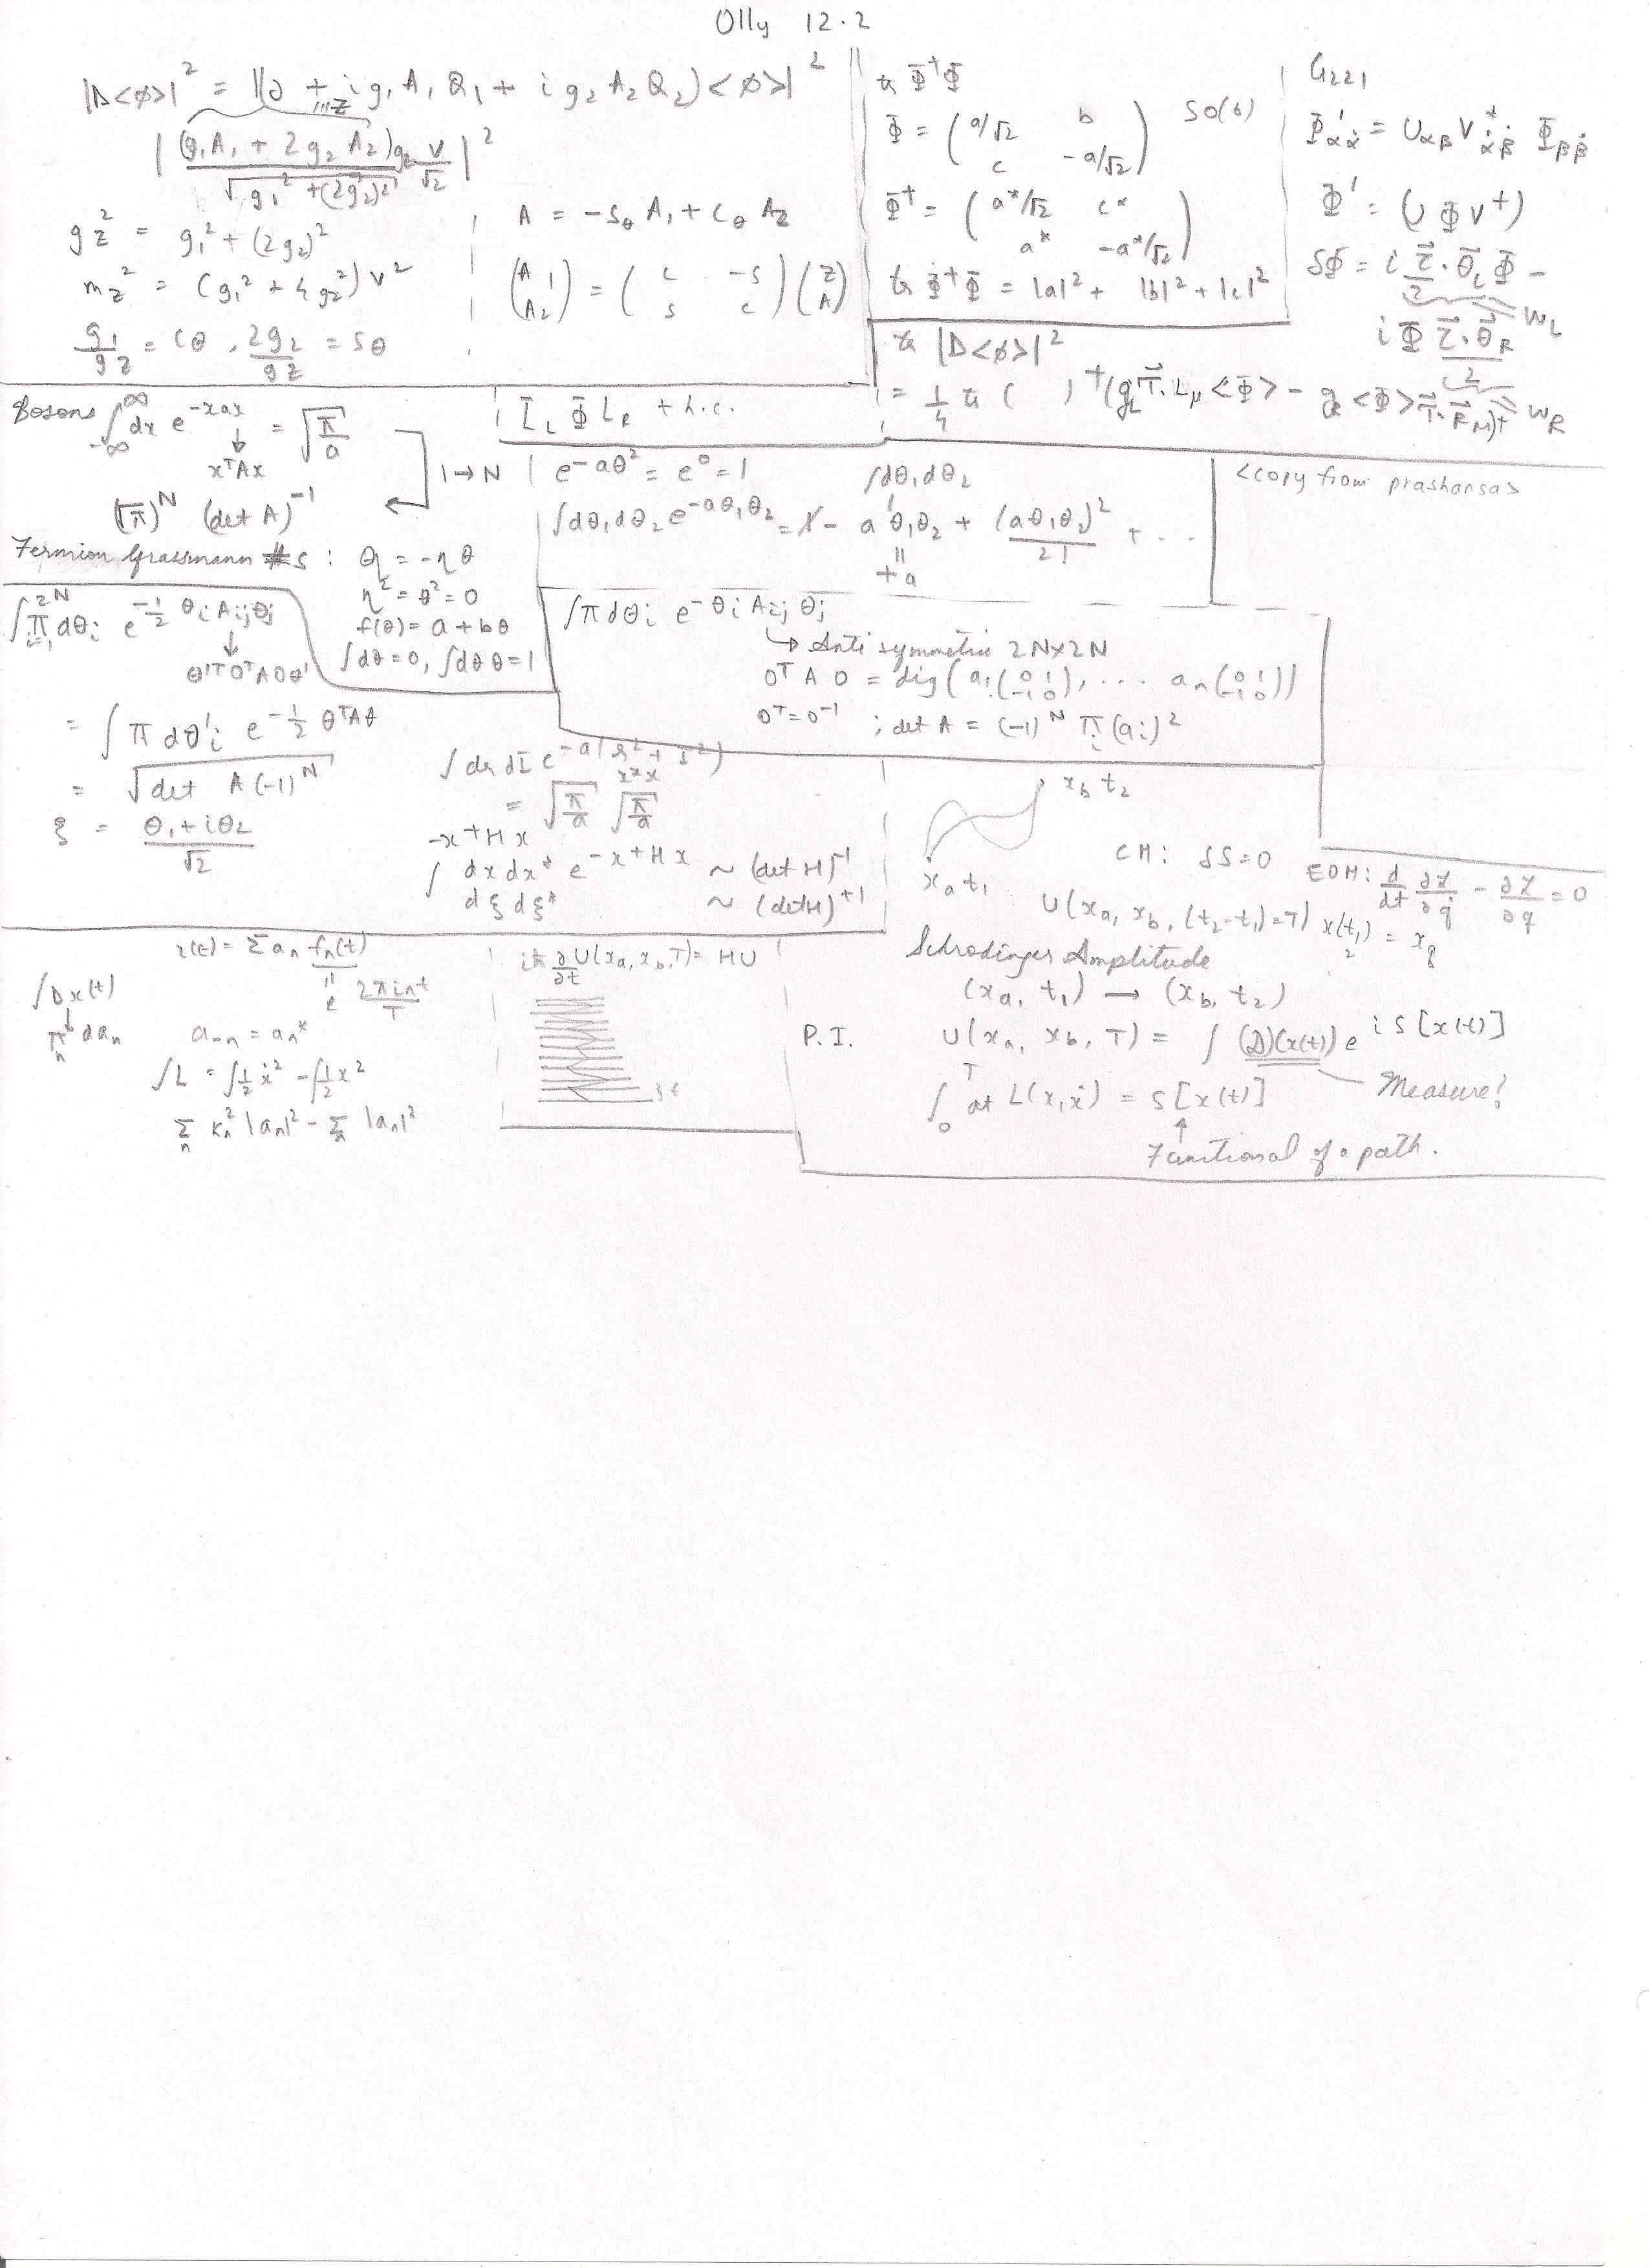 Olly 12.2
|D<φ>|² = |(∂ + i g₁ A₁ Q₁ + i g₂ A₂ Q₂)<φ>|²
≡ Z
| (g₁A₁ + 2g₂A₂)g_Z / √(g₁² + (2g₂)²) v/√2 |²
g_Z² = g₁² + (2g₂)²
m_Z² = (g₁² + 4g₂²) v²
g₁/g_Z = cθ , 2g₂/g_Z = sθ
A = -sθ A₁ + cθ A₂
(A₁ A₂) = (c -s s c) (Z A)
tr Φ†Φ
Φ = (a/√2 b c -a/√2) SO(6)
Φ† = (a*/√2 c* a* -a*/√2)
tr Φ†Φ = |a|² + |b|² + |c|²
G₂₂₁
Φ'αα̇ = Uαβ V*α̇β̇ Φββ̇
Φ' = (U Φ V†)
δΦ = i τ⃗/2 · θ⃗_L Φ -
W_L
i Φ τ⃗·θ⃗_R / 2
W_R
tr |D<φ>|²
= 1/4 tr ( )†(g_L τ⃗·L_μ <Φ> - g_R <Φ> τ⃗·R⃗_M)†
L̄_L Φ L_R + h.c.
Bosons ∫_{-∞}^{∞} dx e^{-xax} = √(π/a)
↓
xᵀAx
1→N
(√π)^N (det A)^{-1}
Fermion Grassmann #s : θη = -ηθ
η² = θ² = 0
f(θ) = a + bθ
∫dθ = 0, ∫dθ θ = 1
e^{-aθ²} = e⁰ = 1
∫dθ₁dθ₂
∫dθ₁dθ₂ e^{-aθ₁θ₂} = 1 - aθ₁θ₂ + (aθ₁θ₂)²/2! + ...
||
+a
<copy from prashansa>
∫∏_{i=1}^{2N} dθᵢ e^{-1/2 θᵢ Aᵢⱼ θⱼ}
↓
θ'ᵀOᵀAOθ'
= ∫ π dθ'ᵢ e^{-1/2 θᵀAθ}
= √(det A (-1)^N)
ξ = (θ₁ + iθ₂)/√2
∫π dθᵢ e^{-θᵢ Aᵢⱼ θⱼ}
↳ Anti symmetric 2N×2N
Oᵀ A O = dig(a₁(0 1 -1 0), ... aₙ(0 1 -1 0))
Oᵀ = O⁻¹ ; det A = (-1)^N ∏ᵢ (aᵢ)²
∫dr dI e^{-a(r² + I²)}
x*x
= √(π/a) √(π/a)
-x†Hx
∫ dx dx* e^{-x†Hx} ~ (det H)^{-1}
dξ dξ* ~ (det H)^{+1}
x_b t₂
x_a t₁
CM: δS = 0
EOM: d/dt ∂L/∂q̇ - ∂L/∂q = 0
U(x_a, x_b, (t₂-t₁)=T)
Schrodinger Amplitude
(x_a, t₁) → (x_b, t₂)
P.I. U(x_a, x_b, T) = ∫ (D)(x(t)) e^{i S[x(t)]}
Measure?
∫₀ᵀ dt L(x, ẋ) = S[x(t)]
↑
Functional of a path.
x(t) = Σ aₙ fₙ(t)
||
e^{2πint/T}
∫Dx(t)
↓
∏ₙ daₙ
a₋ₙ = aₙ*
∫L = ∫1/2 ẋ² - ∫1/2 x²
Σₙ Kₙ² |aₙ|² - Σₙ |aₙ|²
iħ ∂/∂t U(x_a, x_b, T) = HU
}ε